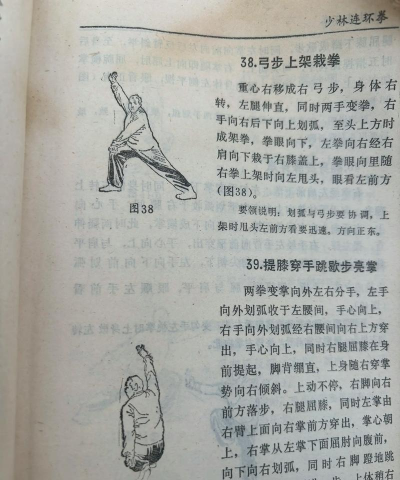 少林连环拳
38.弓步上架栽拳
重心右移成右弓步，身体右
转，左腿伸直，同时两手变拳，右
手向右后下向上划弧，至头上方时
成架拳，拳眼向下，左拳向右经右
肩向下栽于右膝盖上，拳眼向里随
右拳上架时向左甩头，眼看左前方
(图38)。
要领说明：划弧与弓步要协调，上
架时甩头左前方看要迅速。方向正东。
图38
39.提膝穿手跳歇步亮掌
两拳变掌向外左右分手，左手
向外划弧收于左腰间，手心向上，
右手向外划弧经右腰间向右上方穿
出，手心向上，同时右腿屈膝在身
前提起，脚背绷直，上身随右穿掌
势向右倾斜。上动不停，右脚向右
前方落步，右腿屈膝，同时左掌由
右臂上面向右掌前方穿出，掌心朝
上，右掌从左掌下面屈肘向腹前，
向下向右划弧，同时右脚蹬地跳